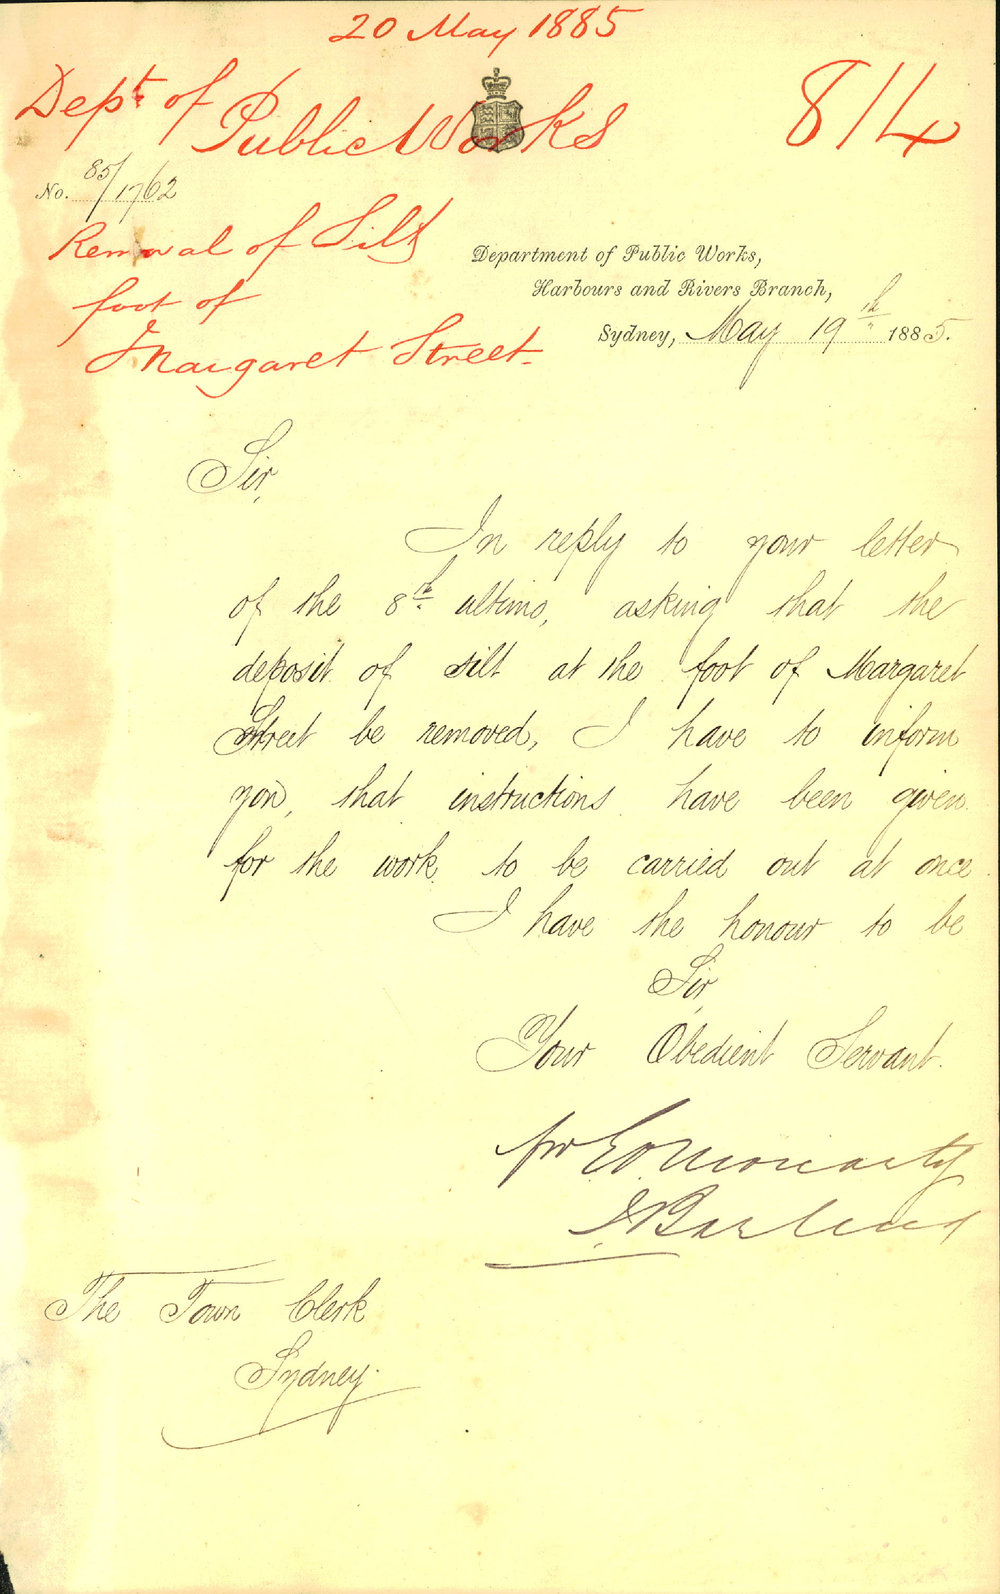 20 May 1885
Dept. of Public Works
814
No. 85/1762
Removal of Silt
foot of
Margaret Street.
Department of Public Works,
Harbours and Rivers Branch,
Sydney, May 19th 1885.
Sir,
In reply to your letter
of the 8th ultimo, asking that the
deposit of silt at the foot of Margaret
Street be removed, I have to inform
you, that instructions have been given
for the work to be carried out at once.
I have the honour to be
Sir,
Your Obedient Servant.
for E O Moriarty
J Barling
The Town Clerk
Sydney.